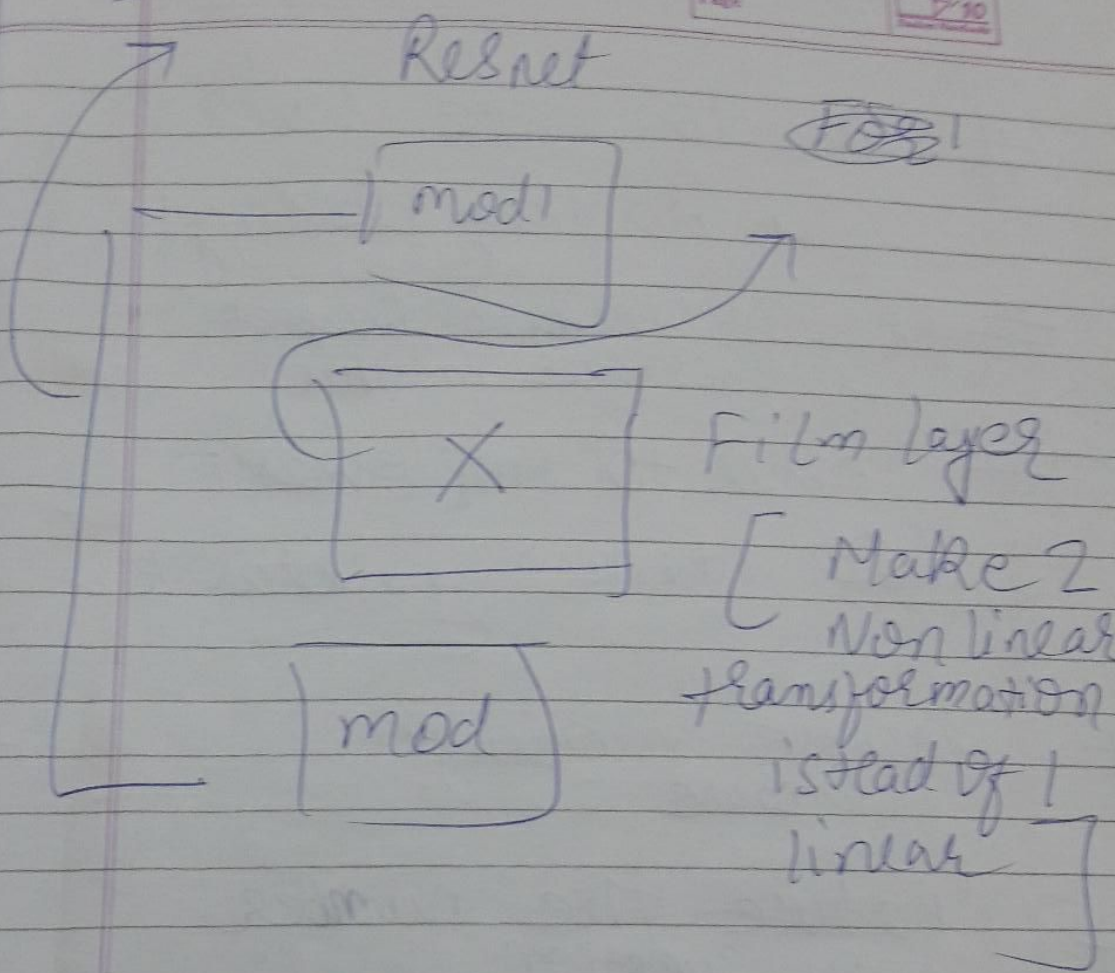 Resnet
mod1
X
Film layer
[ Make 2
Non linear
transformation
istead of 1
linear ]
mod